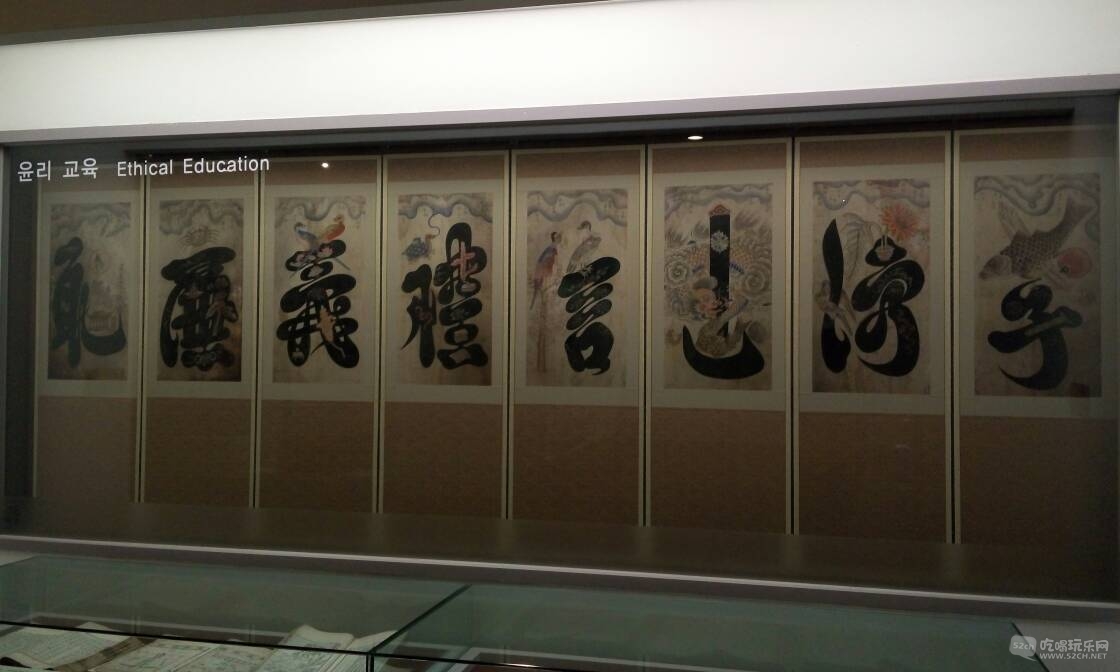 윤리 교육 Ethical Education
孝悌忠信禮義廉恥
52ch 吃喝玩乐网
WWW.52CH.NET